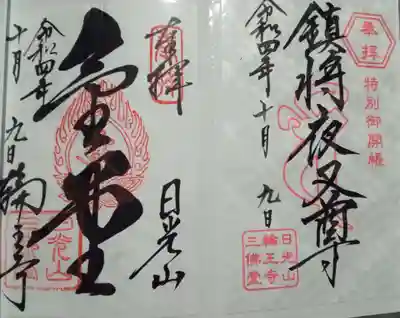 奉拝
特別御開帳
鎮将夜叉尊
令和四年十月九日
日光山
輪王寺
三佛堂
奉拝
日光山
令和四年
十月九日
輪王寺